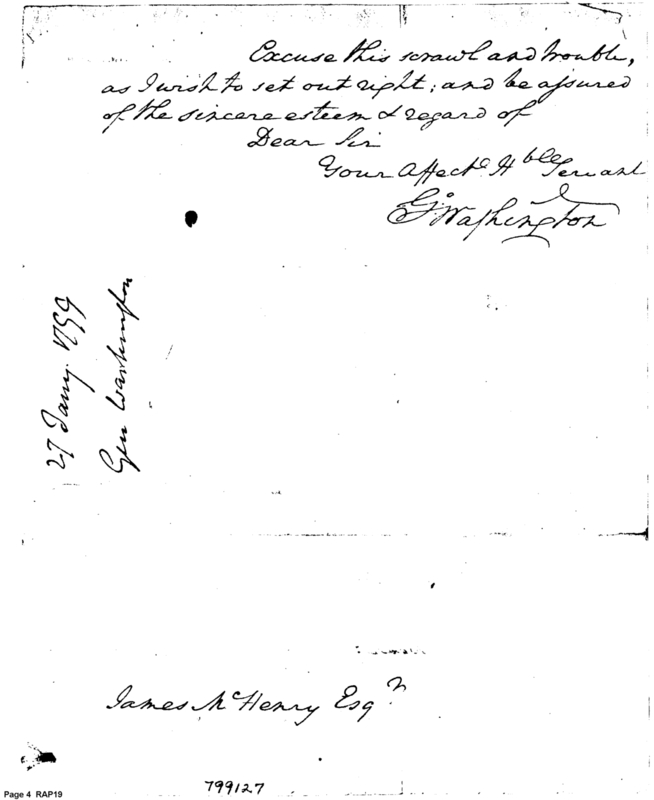 Excuse this scrawl and trouble,
as I wish to set out right; and be assured
of the sincere esteem & regard of
Dear Sir
Your Affecte Hble Servant
Go Washington
27 Jany. 1799
Gen Washington
James McHenry Esqr
799127
Page 4 RAP19